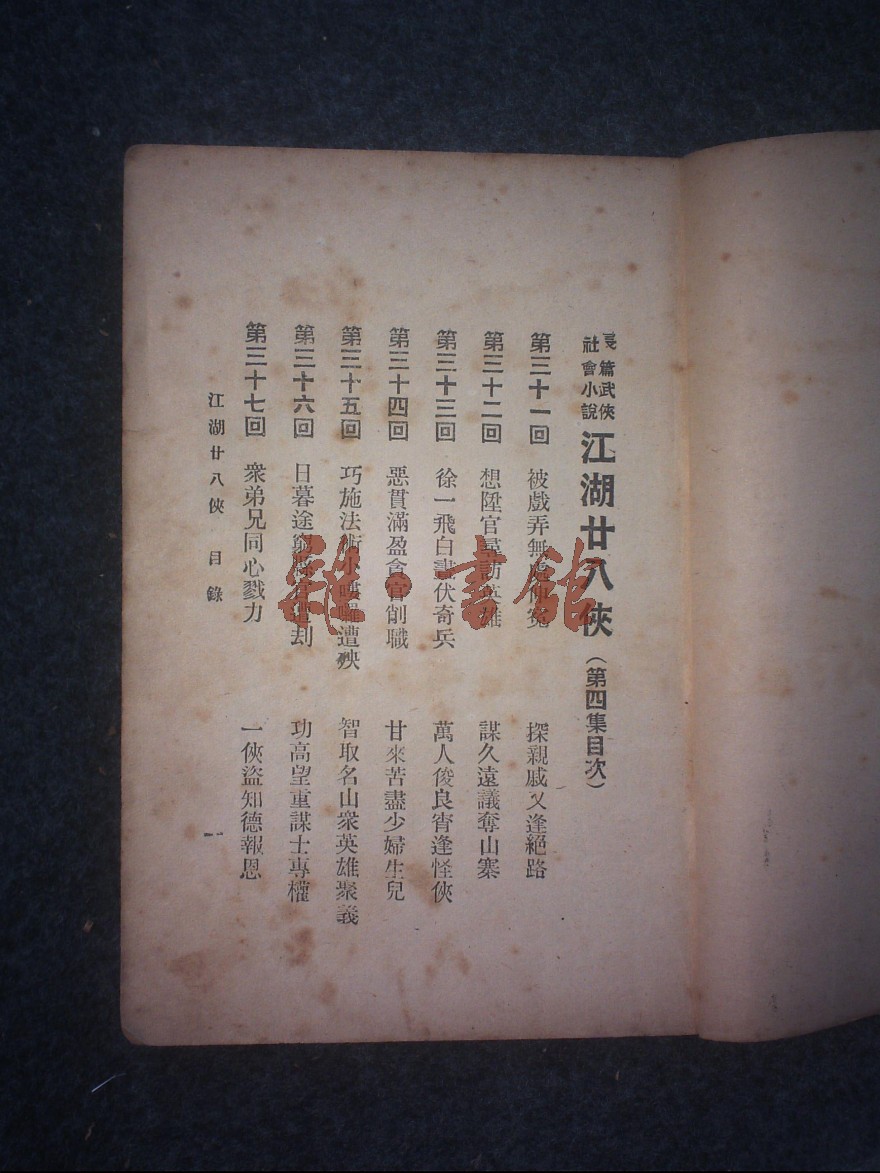 長篇武俠
社會小說
江湖廿八俠（第四集目次）
第三十一回 被戲弄無處伸冤 探親戚又逢絕路
第三十二回 想陞官尋訪英雄 謀久遠議奪山寨
第三十三回 徐一飛白晝伏奇兵 萬人俊良宵逢怪俠
第三十四回 惡貫滿盈貪官削職 甘來苦盡少婦生兒
第三十五回 巧施法術小嘍囉遭殃 智取名山衆英雄聚義
第三十六回 日暮途窮 遭刦 功高望重謀士專權
第三十七回 衆弟兄同心戮力 一俠盜知德報恩
江湖廿八俠 目錄
一
書館